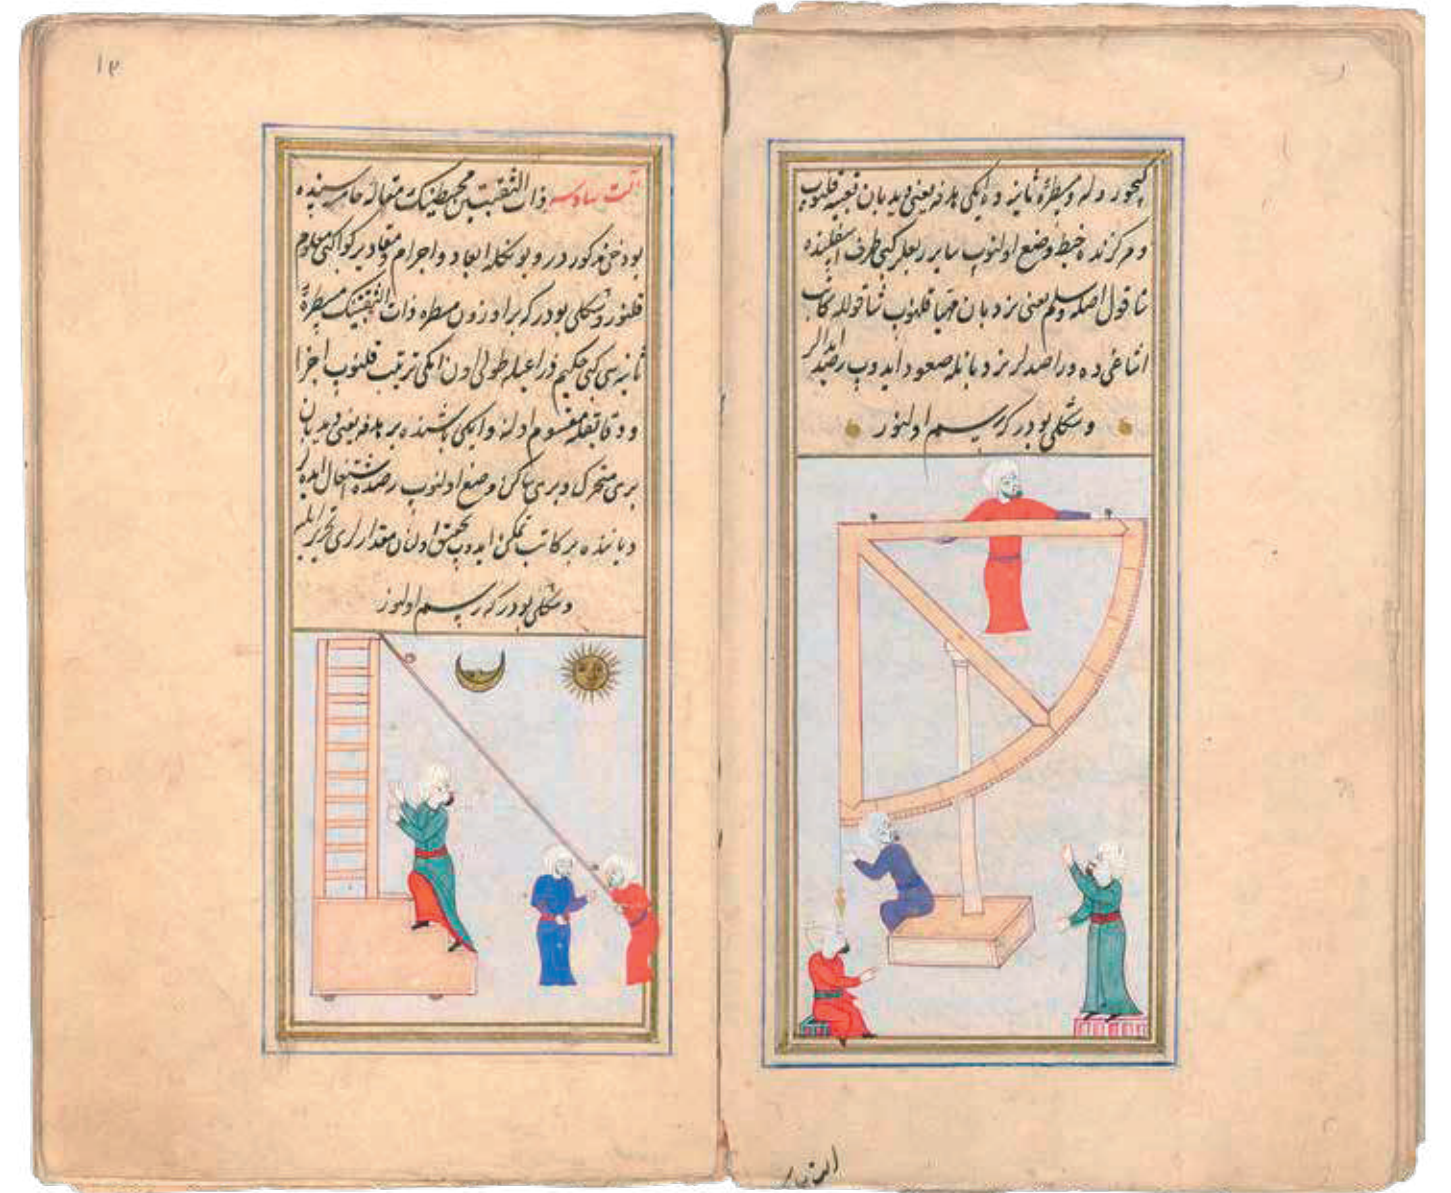 و مسطرهٔ ثانیه و ایكی هدفه یعنی دیدبان تعبیه قلنوب
و مركزنده خیط وضع اولنوب سایر ربعلر كبی طرف اسفلنده
شاقول اصله و سلم یعنی نردبان مهیا قلنوب شاقولله كاتب
اشاغی ده و راصدلر نردبانله صعود ایدوب رصد ایدرلر
و شكلی بودر كه رسم اولنور
آلت سادسه ذات الثقبتین مقاله خامسه سنده
بو دخی مذكوردر و بونكله ابعاد و اجرام و مقادیر كواكبی معلوم
قلنور و شكلی بودر كه بر اوزون مسطره ذات الثقبتینك مسطرهٔ
ثانیه سی كبی حكیم ذراعیله طولی اون ایكی ترتیب قلنوب اجزا
و دقایقله مقسوم اوله و ایكی باشنده بر هدفه یعنی دیدبان
بری متحرك و بری ساكن وضع اولنوب رصده اشتغال ایدرلر
و یاننده بر كاتب تمكن ایدوب تحقیق اولنان مقدارلری تحریر ایلیه
و شكلی بودر كه رسم اولنور